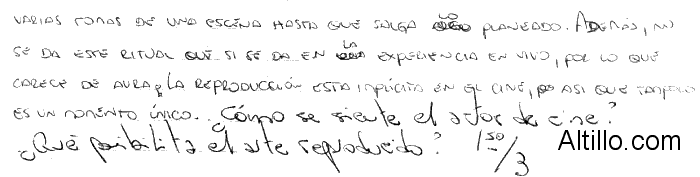 VARIAS TOMAS DE UNA ESCENA HASTA QUE SALGA LO PLANEADO. ADEMÁS, NO
SE DA ESTE RITUAL QUE SI SE DA EN LA EXPERIENCIA EN VIVO, POR LO QUE
CARECE DE AURA, LA REPRODUCCIÓN ESTA IMPLÍCITA EN EL CINE, ASI QUE TAMPOCO
ES UN MOMENTO ÚNICO. ¿Cómo se siente el actor de cine?
¿Qué posibilita el arte reproducido? 1 50/3
Altillo.com